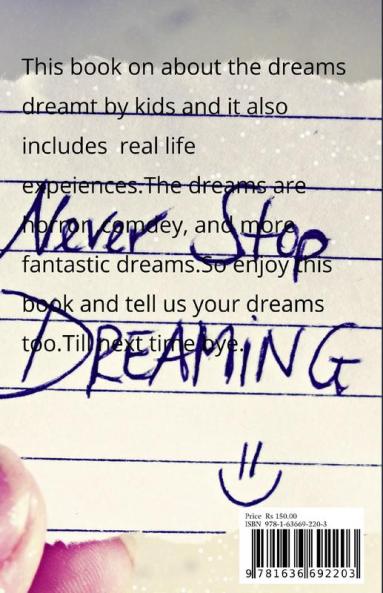 This book on about the dreams
dreamt by kids and it also
includes  real life
expeiences.The dreams are
horror, comdey, and more
fantastic dreams.So enjoy this
book and tell us your dreams
too.Till next time bye.
Never Stop
DREAMiNG
Price  Rs 150.00
ISBN  978-1-63669-220-3
9 781636 692203